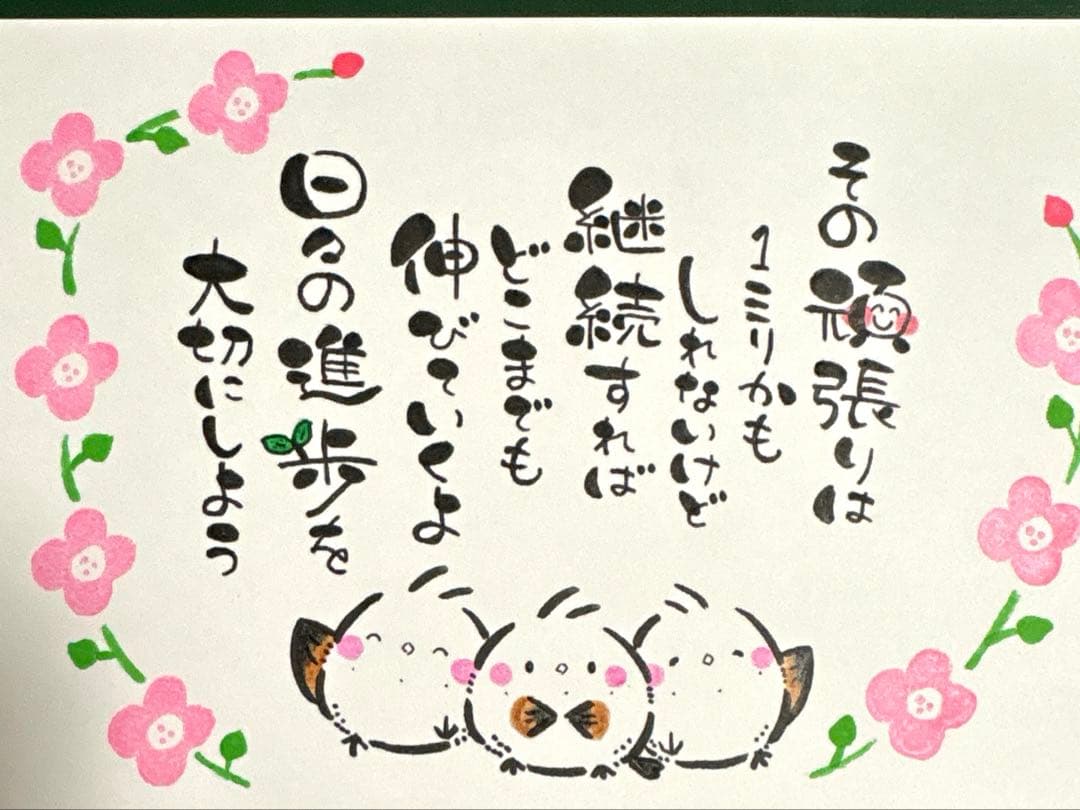 その頑張りは
1ミリかも
しれないけど
継続すれば
どこまでも
伸びていくよ
日々の進歩を
大切にしよう